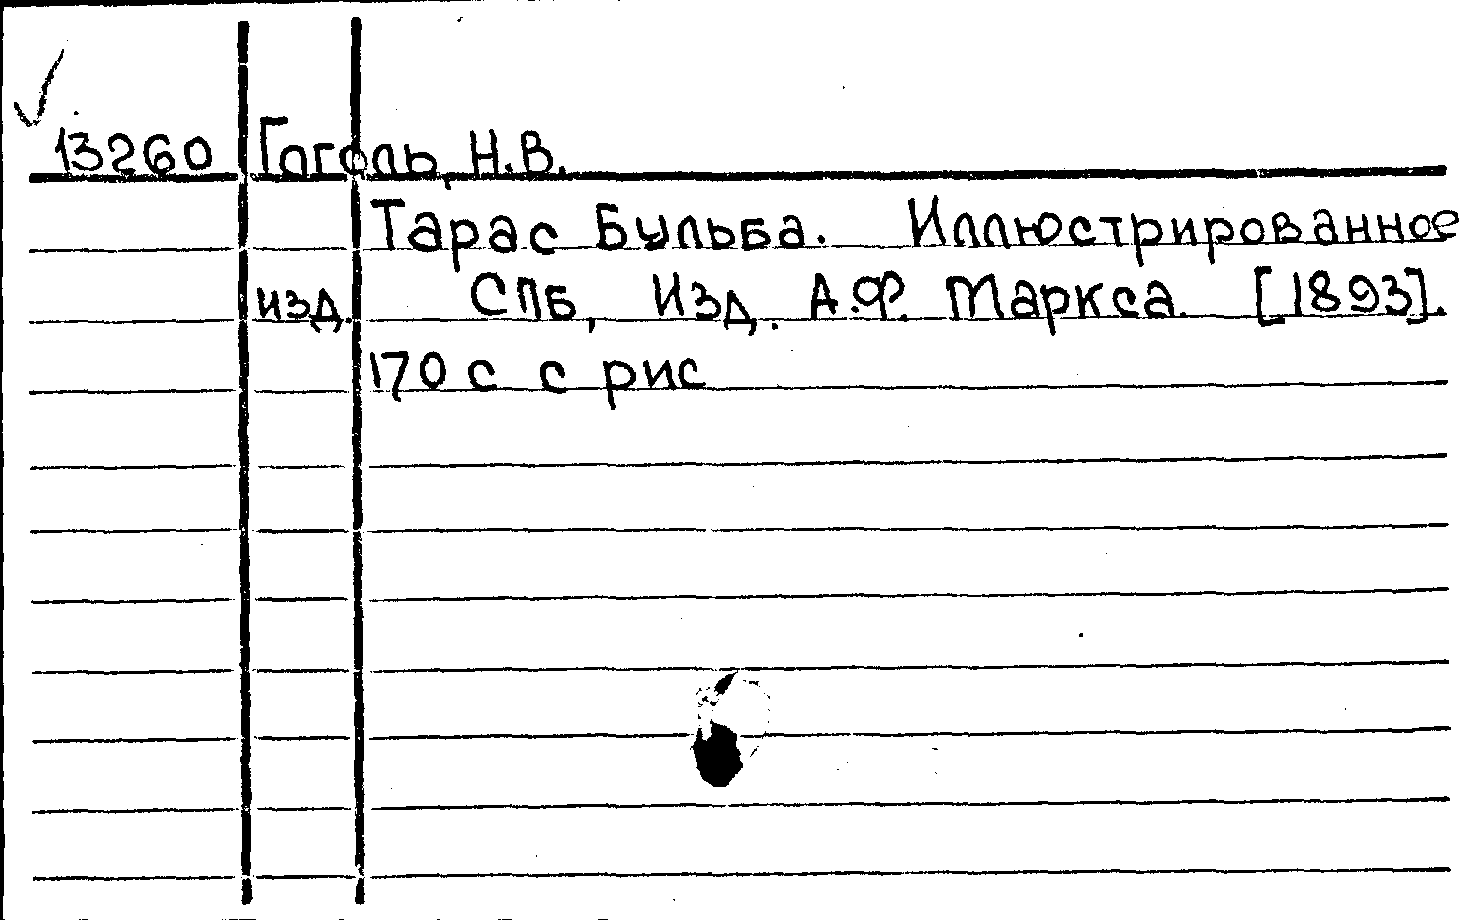 13260 Гоголь, Н.В.
Тарас Бульба. Иллюстрированное
изд. СПб, Изд. А.Ф. Маркса. [1893].
170 с с рис